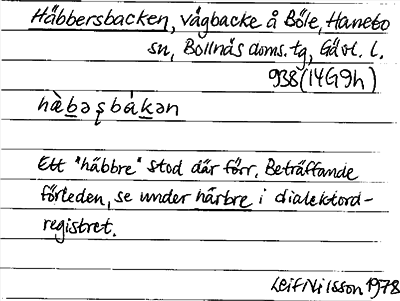 Häbbersbacken, vägbacke å Böle, Hanebo
sn, Bollnäs doms. tg, Gävl. l.
938 (14G9h)
hà̤bəʂbákən
Ett "häbbre" stod där förr. Beträffande
förleden, se under härbre i dialektord-
registret.
Leif Nilsson 1978